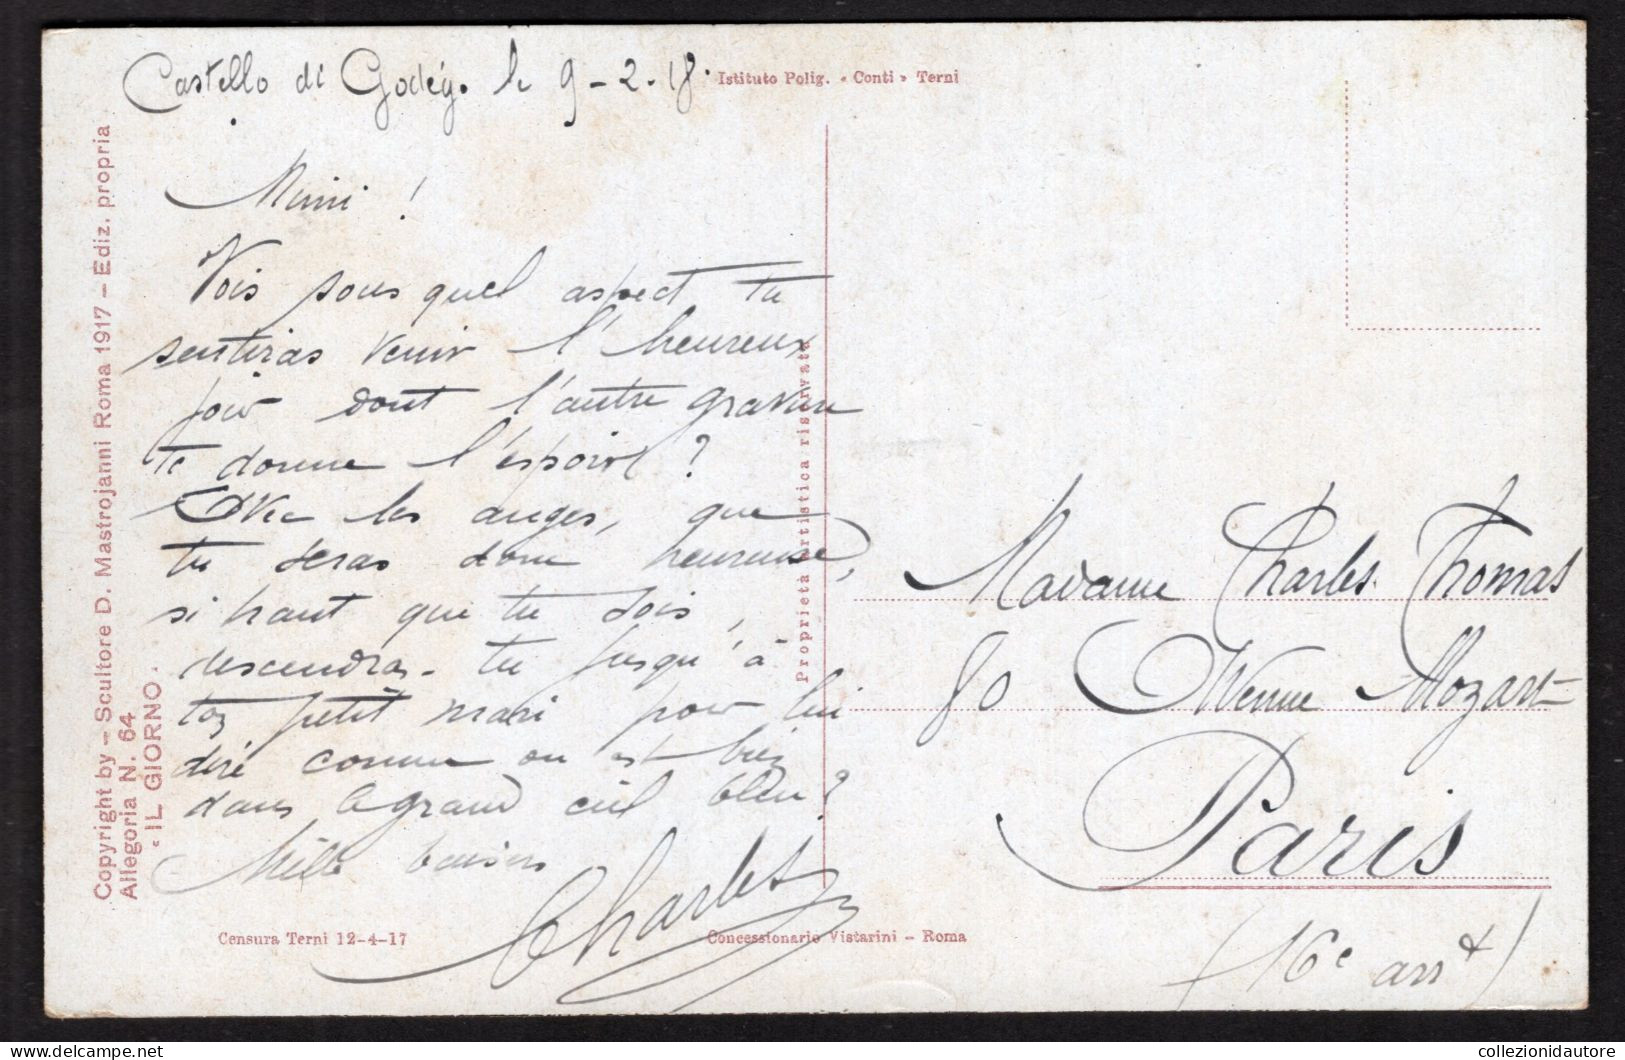 Castello di Godégo le 9-2-18.
Istituto Polig. « Conti » Terni
Mimi !
Vois sous quel aspect tu
sentiras venir l'heureux
jour dont l'autre gravure
te donne l'espoir ?
Avec les anges, que
tu seras donc heureuse,
si haut que tu sois,
descendras-tu jusqu'à
ton petit mari pour lui
dire comme on est bien
dans le grand ciel bleu ?
Mille baisers
Charles
Madame Charles Thomas
80 Avenue Mozart
Paris
(16e arrt)
Copyright by - Scultore D. Mastrojanni Roma 1917 - Ediz. propria
Allegoria N. 64
« IL GIORNO »
Proprietà artistica riservata
Censura Terni 12-4-17
Concessionario Vistarini - Roma
collezionidautore